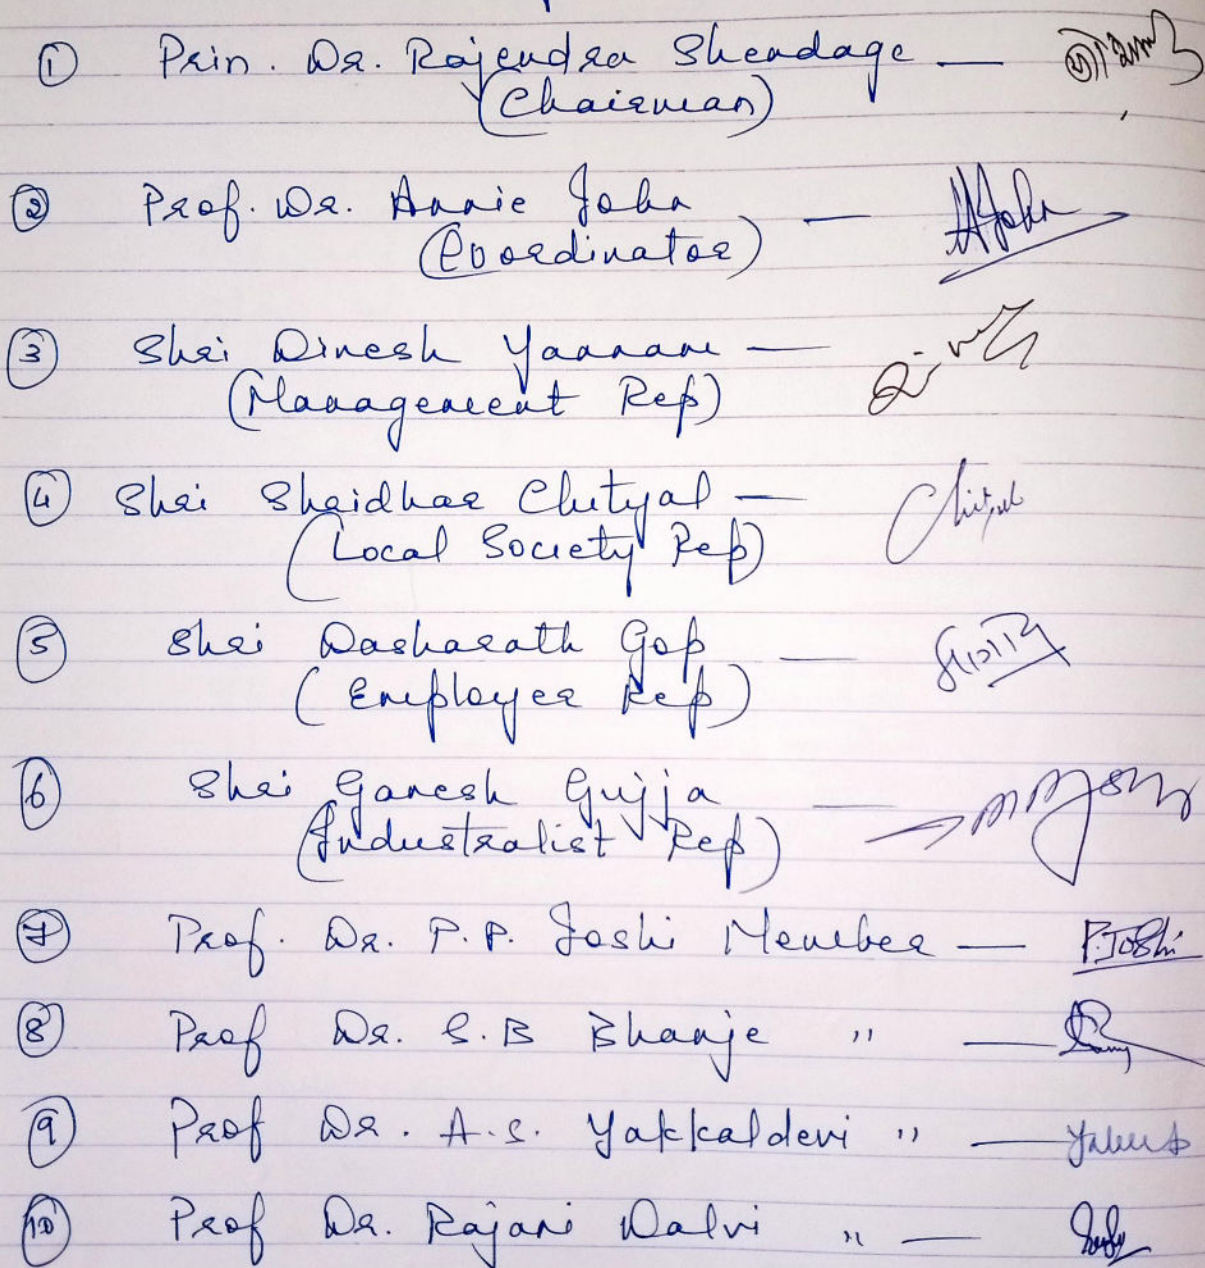 ① Prin. Dr. Rajendra Shendage —
(Chairman)
② Prof. Dr. Annie John — AJohn
(Coordinator)
③ Shri Dinesh Yannam —
(Management Rep)
④ Shri Shridhar Chityal — Chityal
(Local Society Rep)
⑤ Shri Dasharath Gop —
(Employer Rep)
⑥ Shri Ganesh Gujja —
(Industralist Rep)
⑦ Prof. Dr. P.P. Joshi Member — P.Joshi
⑧ Prof Dr. S.B Bhanje " —
⑨ Prof Dr. A.S. Yakkaldevi " —
⑩ Prof Dr. Rajani Dalvi " —